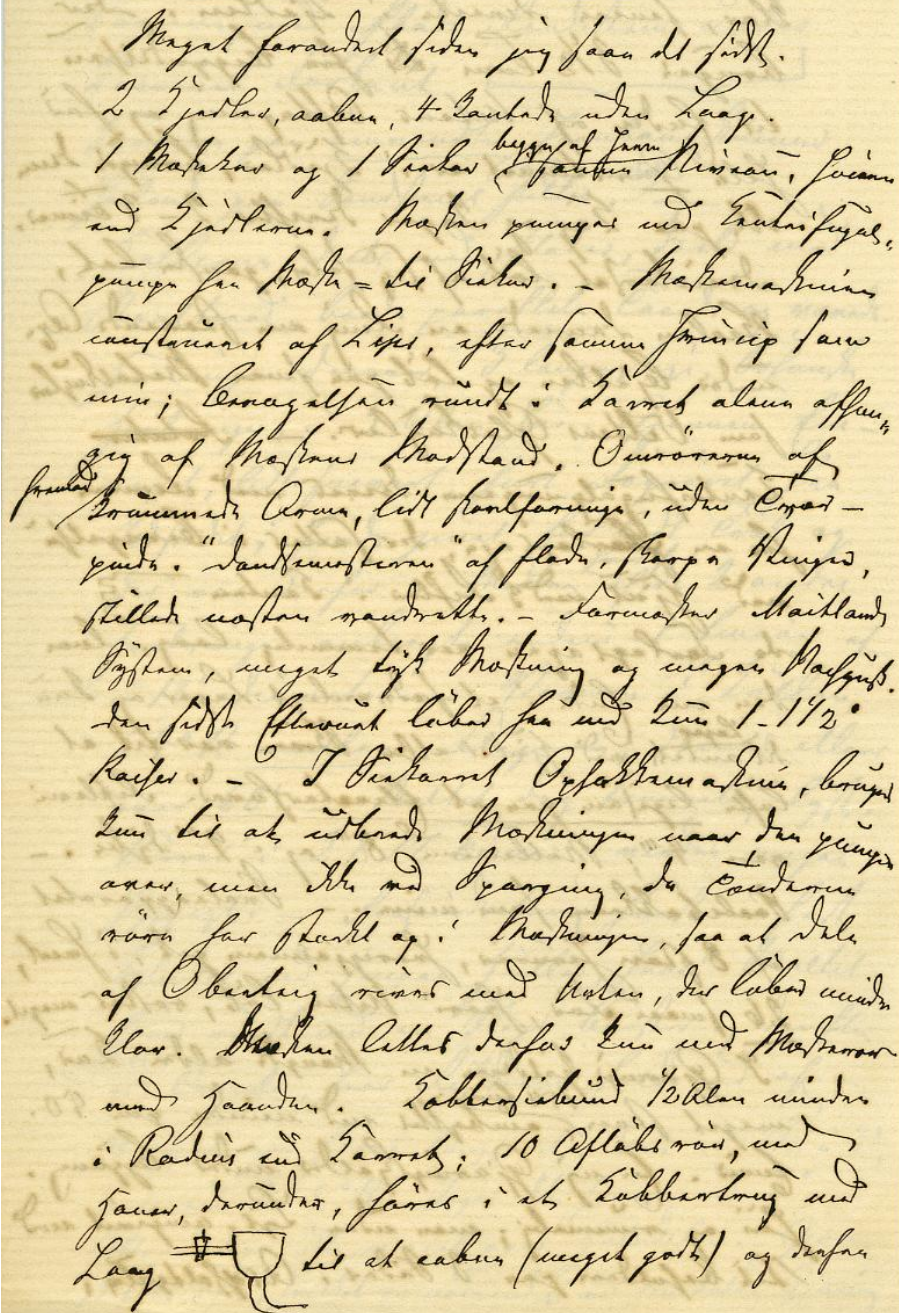 Meget forandret siden jeg saae det sidst.
2 Kjedler, aabne, 4 kantede uden Laag.
1 Mæskekar og 1 Siekar begge af Jern i samme Niveau, høiere
end Kjedlerne. Mæsken pumpes med Centrifugal-
pumpe fra Mæske= til Siekar. – Mæskemaskinen
construeret af Lipps, efter samme Princip som
min; Bevægelsen rundt i Karret alene afhæn-
gig af Mæskens Modstand. Omrørerne af
fremad
krummede Arme, lidt skeeformige, uden Tvær-
pinde. "Dandsemesteren" af flade, skarpe Vinger,
stillede næsten vandrette. – Formasker Maitlands
System, meget tyk Mæskning og megen Nachguss.
den sidste Efterurt løber fra med kun 1-1 1/2°
Kaiser. – I Siekarret Ophakkemaskine, bruges
kun til at udbrede Mæskningen naar den pumpes
over, men ikke ved Sparging, da Tænderne
røre for stærkt op i Mæskningen, saa at Dele
af Oberteig rives med Urten, der løber mindre
klar. Mæsken lettes derfor kun med Mæskerør
med Haanden. Kobbersiebund 1/2 Alen mindre
i Radius end Karret; 10 Afløbsrør, med
Haner, derunder, føres i et Kobbertrug med
Laag til at aabne (meget godt) og derfra